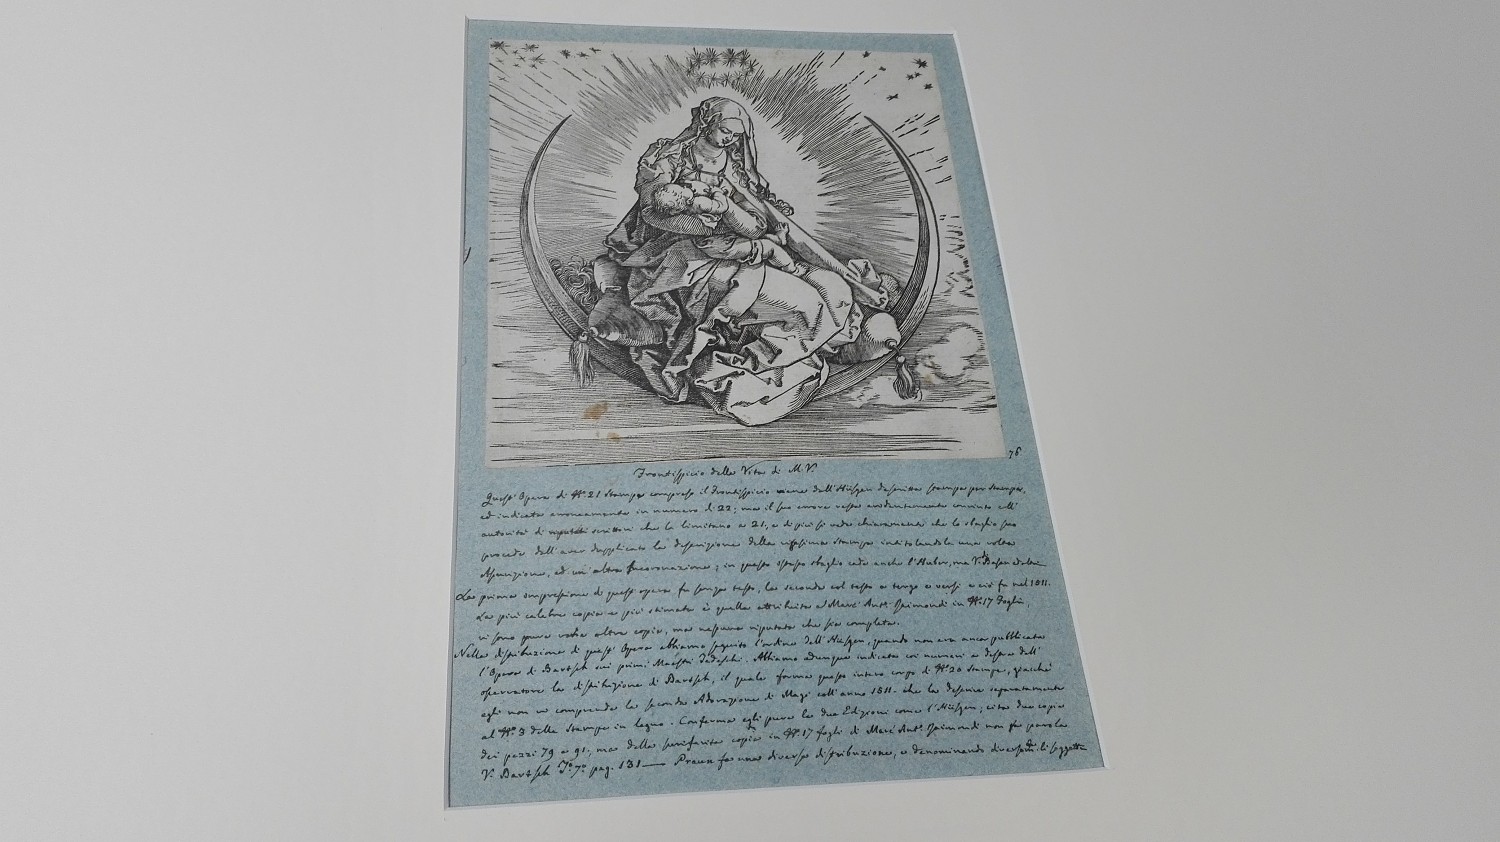 76
Frontispicio della Vita di M. V.
Quest' Opera di N.º 21 Stampe compreso il Frontispicio viene dall' Hüsgen descritta stampa per stampa,
ed indicata erroneamente in numero di 22; ma il suo errore resta evidentemente convinto coll'
autorità di scrittori che la limitano a 21, e di più si vede chiaramente che lo sbaglio suo
procede dall' aver dupplicato la descrizione della stampa intitolandola una volta
Assunzione, ed un' altra Incoronazione; in questo stesso sbaglio cade anche l' Huber, ma V.
La prima impressione di quest' opera fu senza testo, la seconda col testo a tergo e versi e ciò fu nel 1511.
La più celebre copia e più stimata è quella attribuita a Marc' Ant.º Raimondi in N.º 17 Foglj,
vi sono pure varie altre copie, ma nessuna riputata che sia completa.
Nella distribuzione di quest' Opera abbiamo seguito l' ordine dell' Hüsgen, quando non era ancor pubblicata
l' Opera di Bartsch sui primi Maestri Tedeschi. Abbiamo adunque indicata coi numeri a destra dell'
osservatore la distribuzione di Bartsch, il quale forma questo intero corpo di N.º 20 Stampe, giacchè
egli non vi comprende la seconda Adorazione di Magi coll' anno 1511. che la descrive separatamente
al N.º 3 delle Stampe in legno. Conferma egli pure le due Edizioni come l' Hüsgen, cita due copie
dei pezzi 79 e 91, ma della copia in N.º 17 foglj di Marc' Ant.º Raimondi non fa parola
V. Bartsch T.º 7.º pag. 131 — Praun fa una diversa distribuzione, e denominando li soggetti